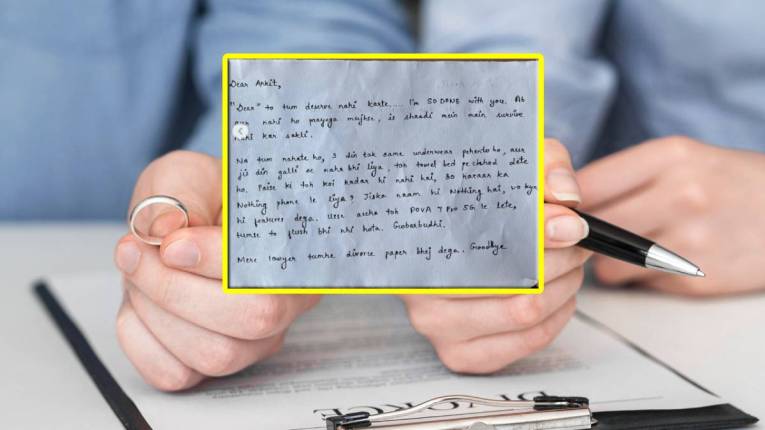 Dear Ankit,
"Dear" to tum deserve nahi karte.... I'm SO DONE with you. Ab
aur nahi ho payega mujhse, is shaadi mein main survive
nahi kar sakti.
Na tum nahate ho, 3 din tak same underwear pehente ho, aur
jis din galti se naha bhi liya, toh towel bed pe chhod dete
ho. Paise ki toh koi kadar hi nahi hai, 30 hazaar ka
Nothing phone le liya? Jiska naam hi Nothing hai, vo kya
hi features dega. Usse accha toh POVA 7 Pro 5G le lete,
tumse to flush bhi nhi hota. Gobarbudhi.
Mere lawyer tumhe divorce paper bhej dega. Goodbye
DIVORCE